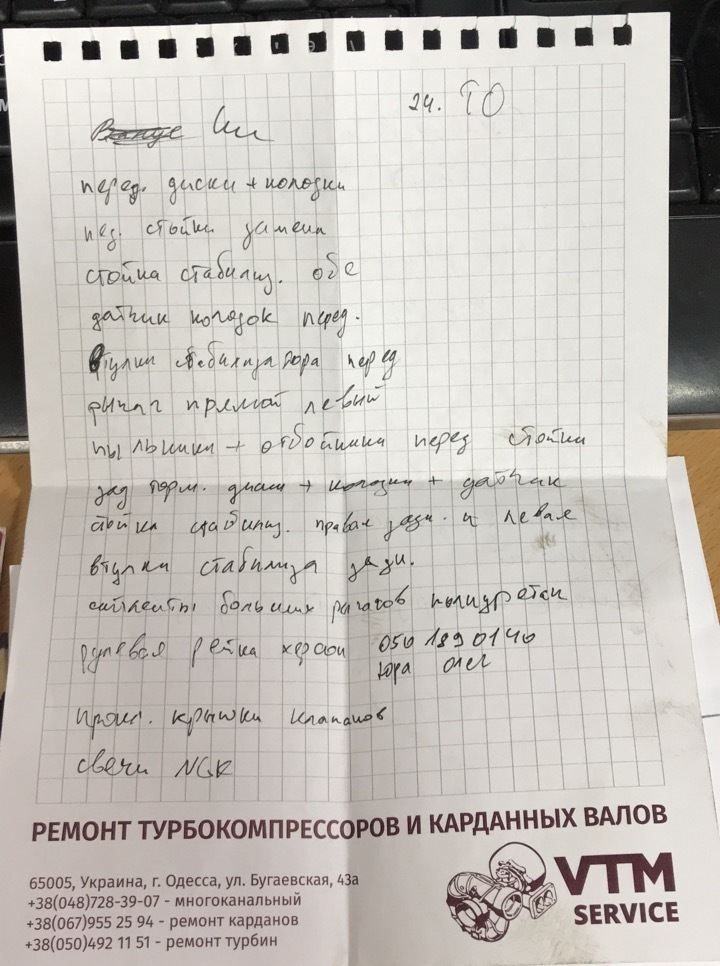 24. ТО
перед. диски + колодки
пед. стойки замена
стойка стабилиз. обе
датчик колодок перед.
втулки стабилизатора перед
рычаг прямой левый
пыльники + отбойники перед стойки
зад торм. диски + колодки + датчик
стойки стабилиз. правая задн. и левая
втулки стабилиза задн.
сайленты больших рычагов полиуретан
рулевая рейка херсон 050 1890140
Юра Олег
прокл. крышки клапанов
свечи NGK
РЕМОНТ ТУРБОКОМПРЕССОРОВ И КАРДАННЫХ ВАЛОВ
65005, Украина, г. Одесса, ул. Бугаевская, 43а
+38(048)728-39-07 - многоканальный
+38(067)955 25 94 - ремонт карданов
+38(050)492 11 51 - ремонт турбин
VTM
SERVICE